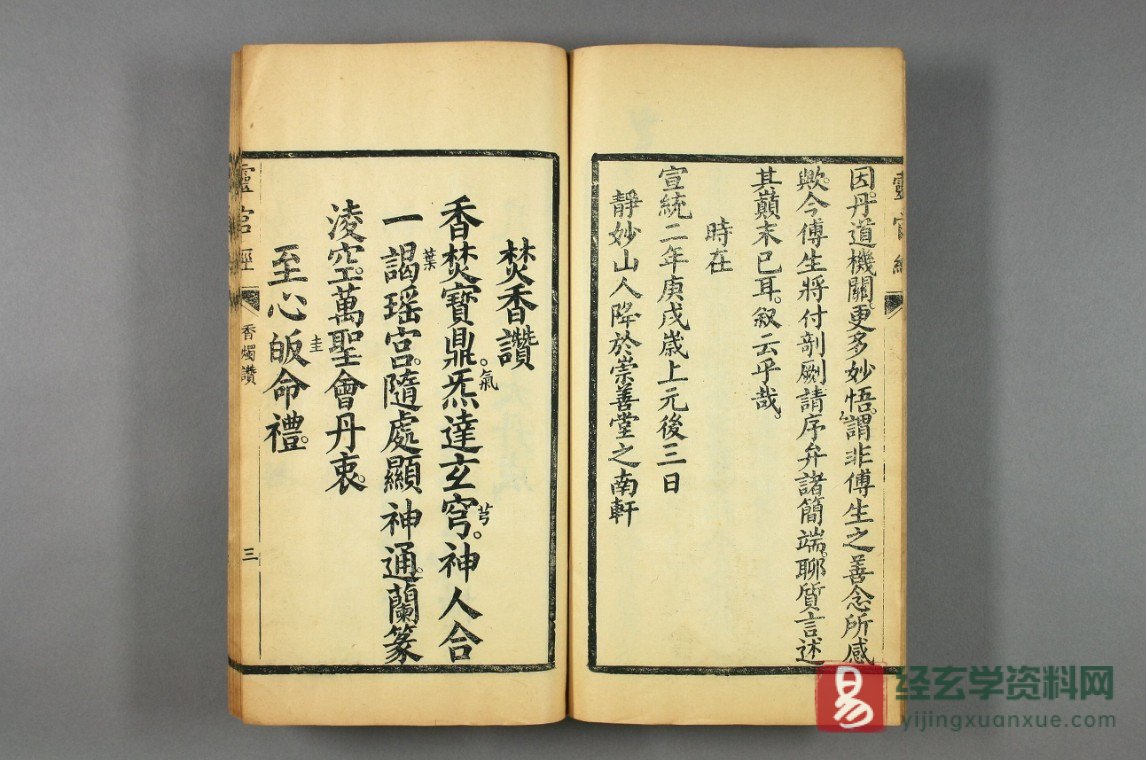 靈官經
因丹道機關。更多妙悟。謂非傅生之善念所感
歟。今傅生將付剞劂請序弁諸簡端。聊質言述
其巔末已耳。叙云乎哉。
時在
宣統二年庚戌歲上元後三日
靜妙山人降於崇善堂之南軒
焚香讚
香焚寶鼎。炁氣達玄穹芎。神人合
一謁葉瑶宮。隨處顯神通。蘭篆
淩空。萬聖圭會丹衷。
至心皈命禮。
靈官經
香燭讚
三
易
经玄学资料网
yijingxuanxue.com